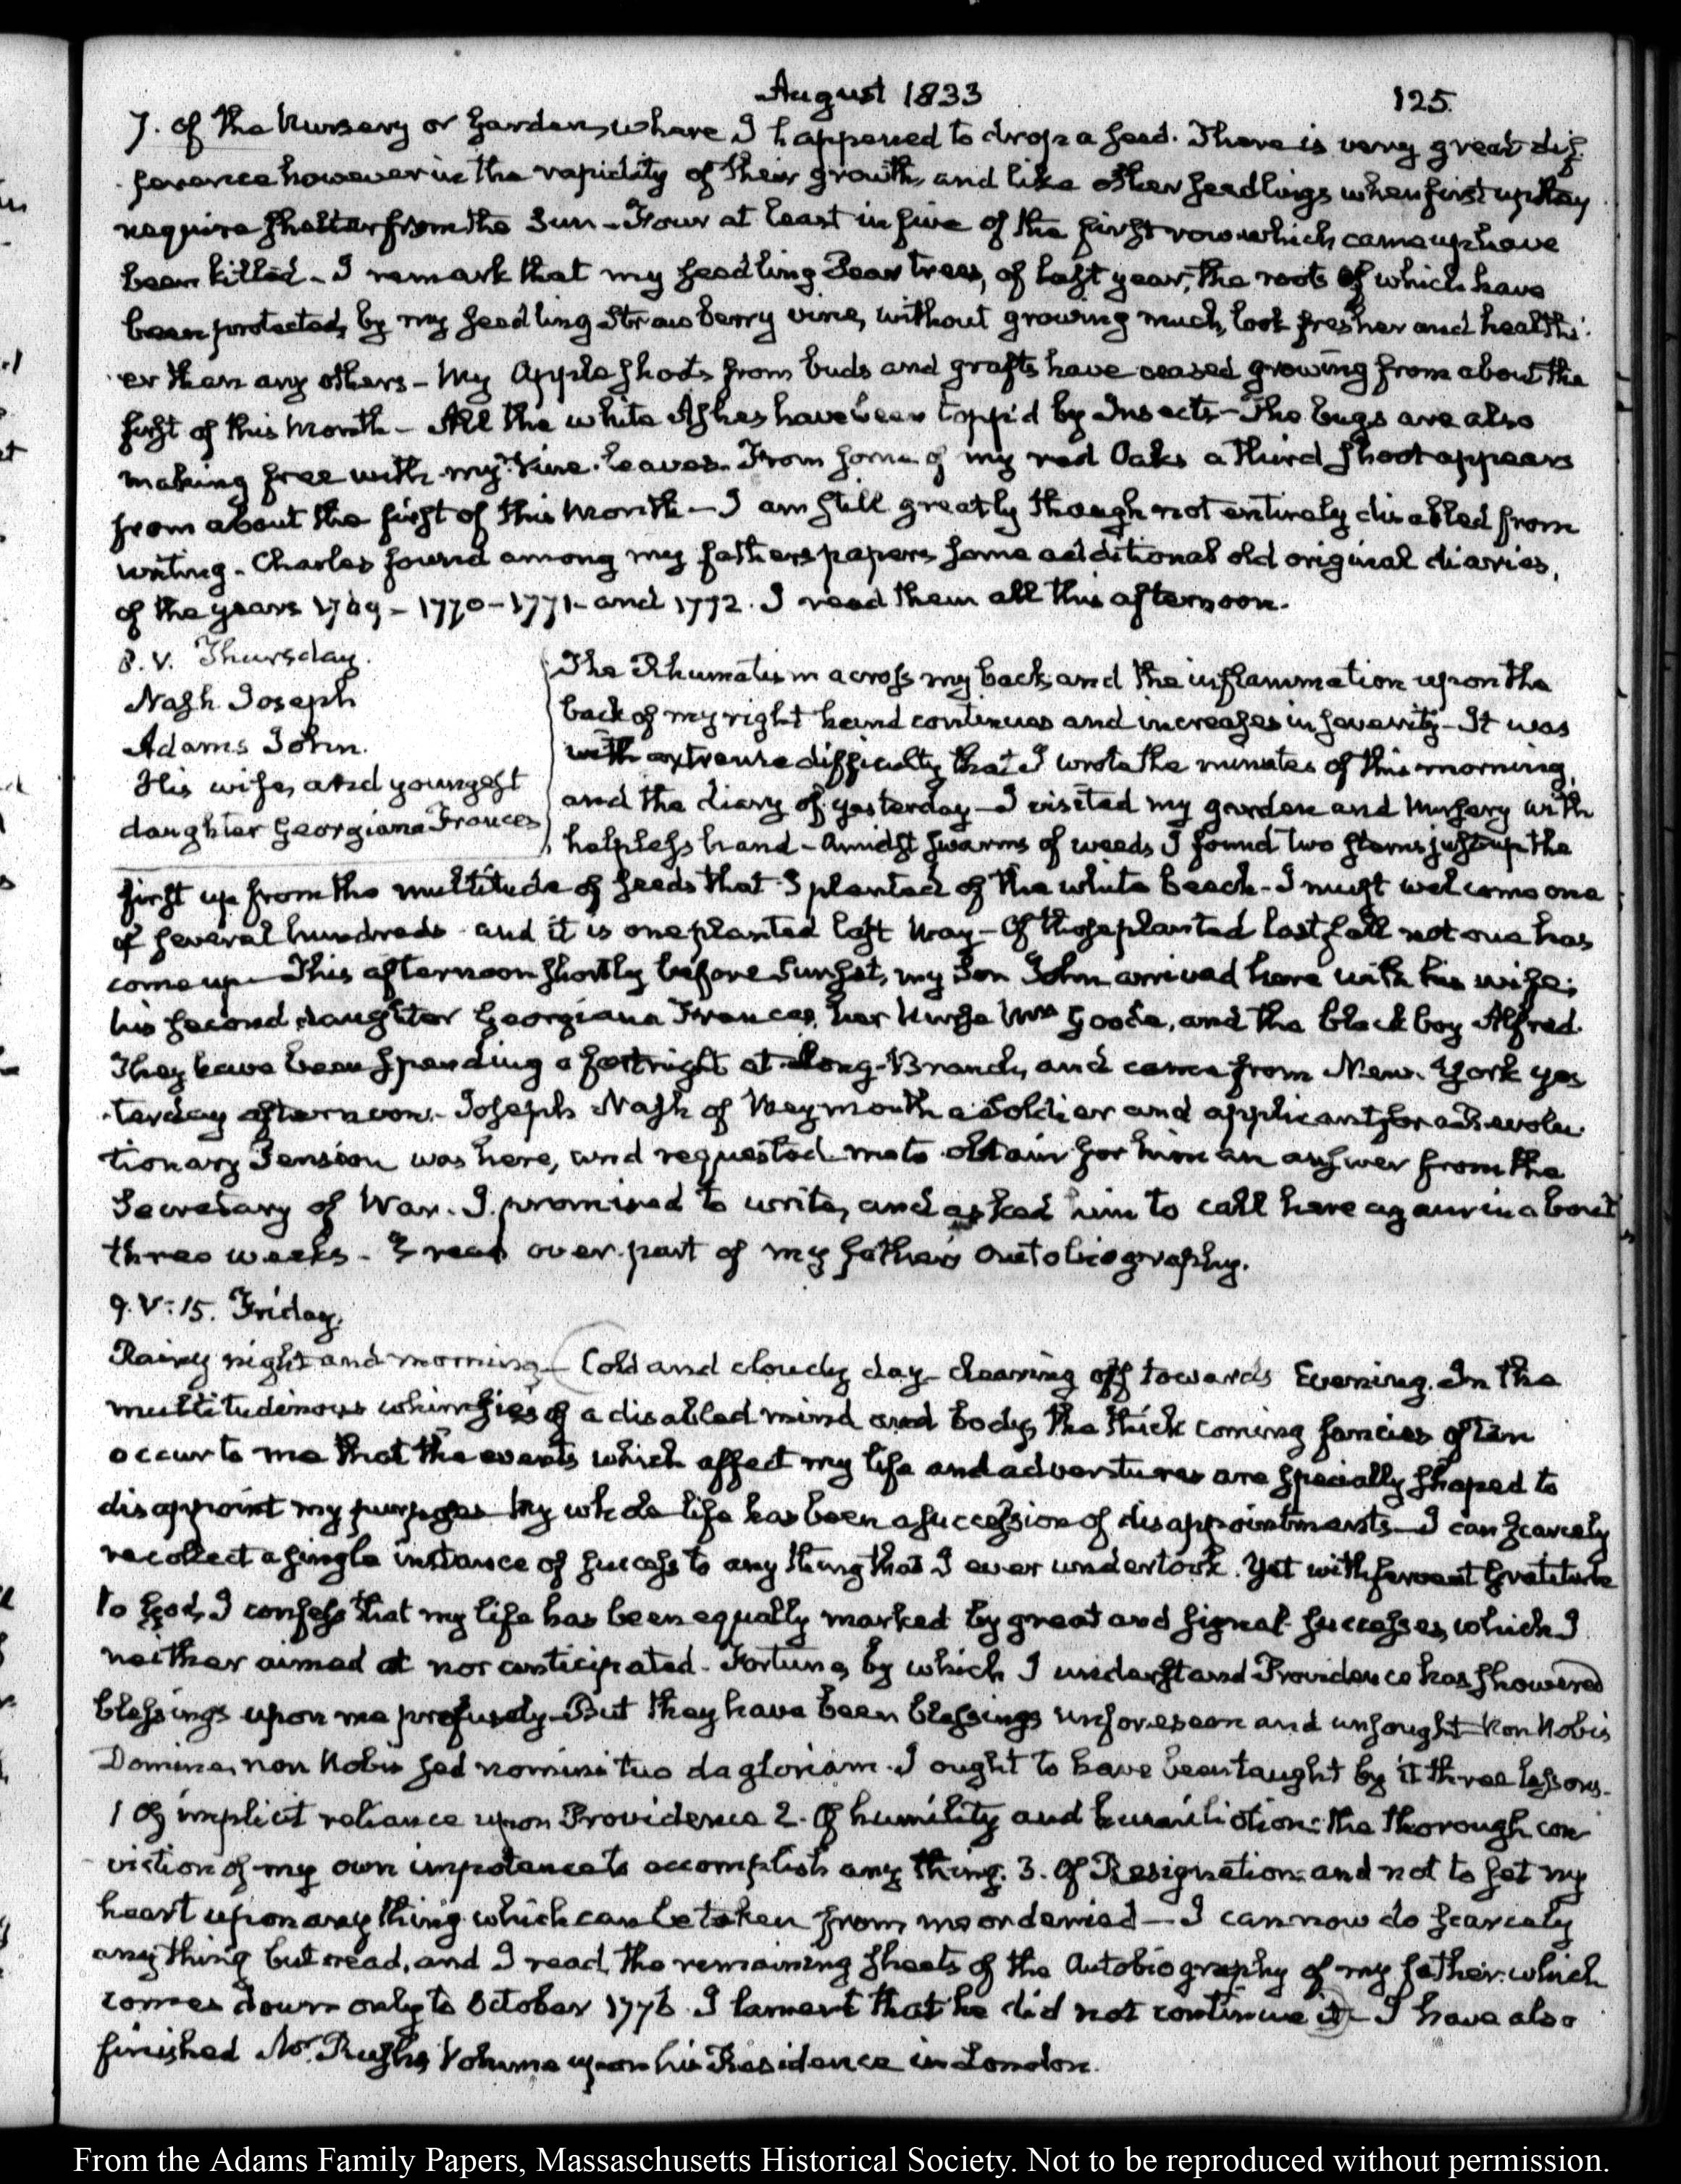 August 1833
125.
7. of the Nursery or Garden, where I happened to drop a seed. There is very great dif-
ference however in the rapidity of their growth, and like other seedlings when first up they
require shelter from the Sun - Four at least in five of the first row which came up have
been killed - I remark that my seedling Pear trees, of last year, the roots of which have
been protected, by my seedling Strawberry vine, without growing much, look fresher and healthi-
er than any others - My Apple shoots from buds and grafts have ceased growing from about the
first of this Month - All the white Ashes have been topp'd by Insects - The bugs are also
making free with my Vine leaves. From some of my red Oaks a third shoot appears
from about the first of this Month - I am still greatly though not entirely disabled from
writing. Charles found among my fathers papers some additional old original diaries,
of the years 1769 - 1770 - 1771 - and 1772. I read them all this afternoon.
8. V. Thursday.
Nash Joseph
Adams John.
His wife, and youngest
daughter Georgiana Frances
The Rhumatism across my back, and the inflammation upon the
back of my right hand continues and increases in severity - It was
with extreme difficulty that I wrote the minutes of this morning,
and the diary of yesterday - I visited my garden and Nursery with
helpless hand - Amidst swarms of weeds I found two stems just up the
first up from the multitude of seeds that I planted of the white beach - I must welcome one
of several hundreds - and it is one planted last May - Of those planted last fall not one has
come up - This afternoon shortly before Sunset, my Son John arrived here with his wife;
his second daughter Georgiana Frances, her Nurse Mrs Goods, and the black boy Alfred.
They have been spending a fortnight at Long-Branch, and came from New-York yes
terday afternoon. Joseph Nash of Weymouth a Soldier and applicant for a Revolu-
tionary Pension was here, and requested me to obtain for him an answer from the
Secretary of War. I promised to write, and asked him to call here again in about
three weeks - I read over part of my father's Autobiography.
9. V:15. Friday.
Rainy night and morning - Cold and cloudy day - clearing off towards Evening. In the
multitudinous whimsies of a disabled mind and body, the thick coming fancies often
occur to me that the events which affect my life and adventures are specially shaped to
disappoint my purposes - My whole life has been a succession of disappointments - I can scarcely
recollect a single instance of success to any thing that I ever undertook. Yet with fervent Gratitude
to God, I confess that my life has been equally marked by great and signal successes, which I
neither aimed at nor anticipated - Fortune, by which I understand Providence has showered
blessings upon me profusely - But they have been blessings unforeseen and unsought - Non Nobis
Domine, non Nobis sed nomini tuo da gloriam. I ought to have been taught by it three lessons -
1 Of implicit reliance upon Providence 2. Of humility and humiliation: the thorough con
viction of my own impotence to accomplish any thing. 3. Of Resignation: and not to set my
heart upon any thing which can be taken from me or denied - I can now do scarcely
any thing but read, and I read the remaining sheets of the Autobiography of my father: which
comes down only to October 1776. I lament that he did not continue it - I have also
finished Mr. Rush's Volume upon his Residence in London.
From the Adams Family Papers, Massachusetts Historical Society. Not to be reproduced without permission.